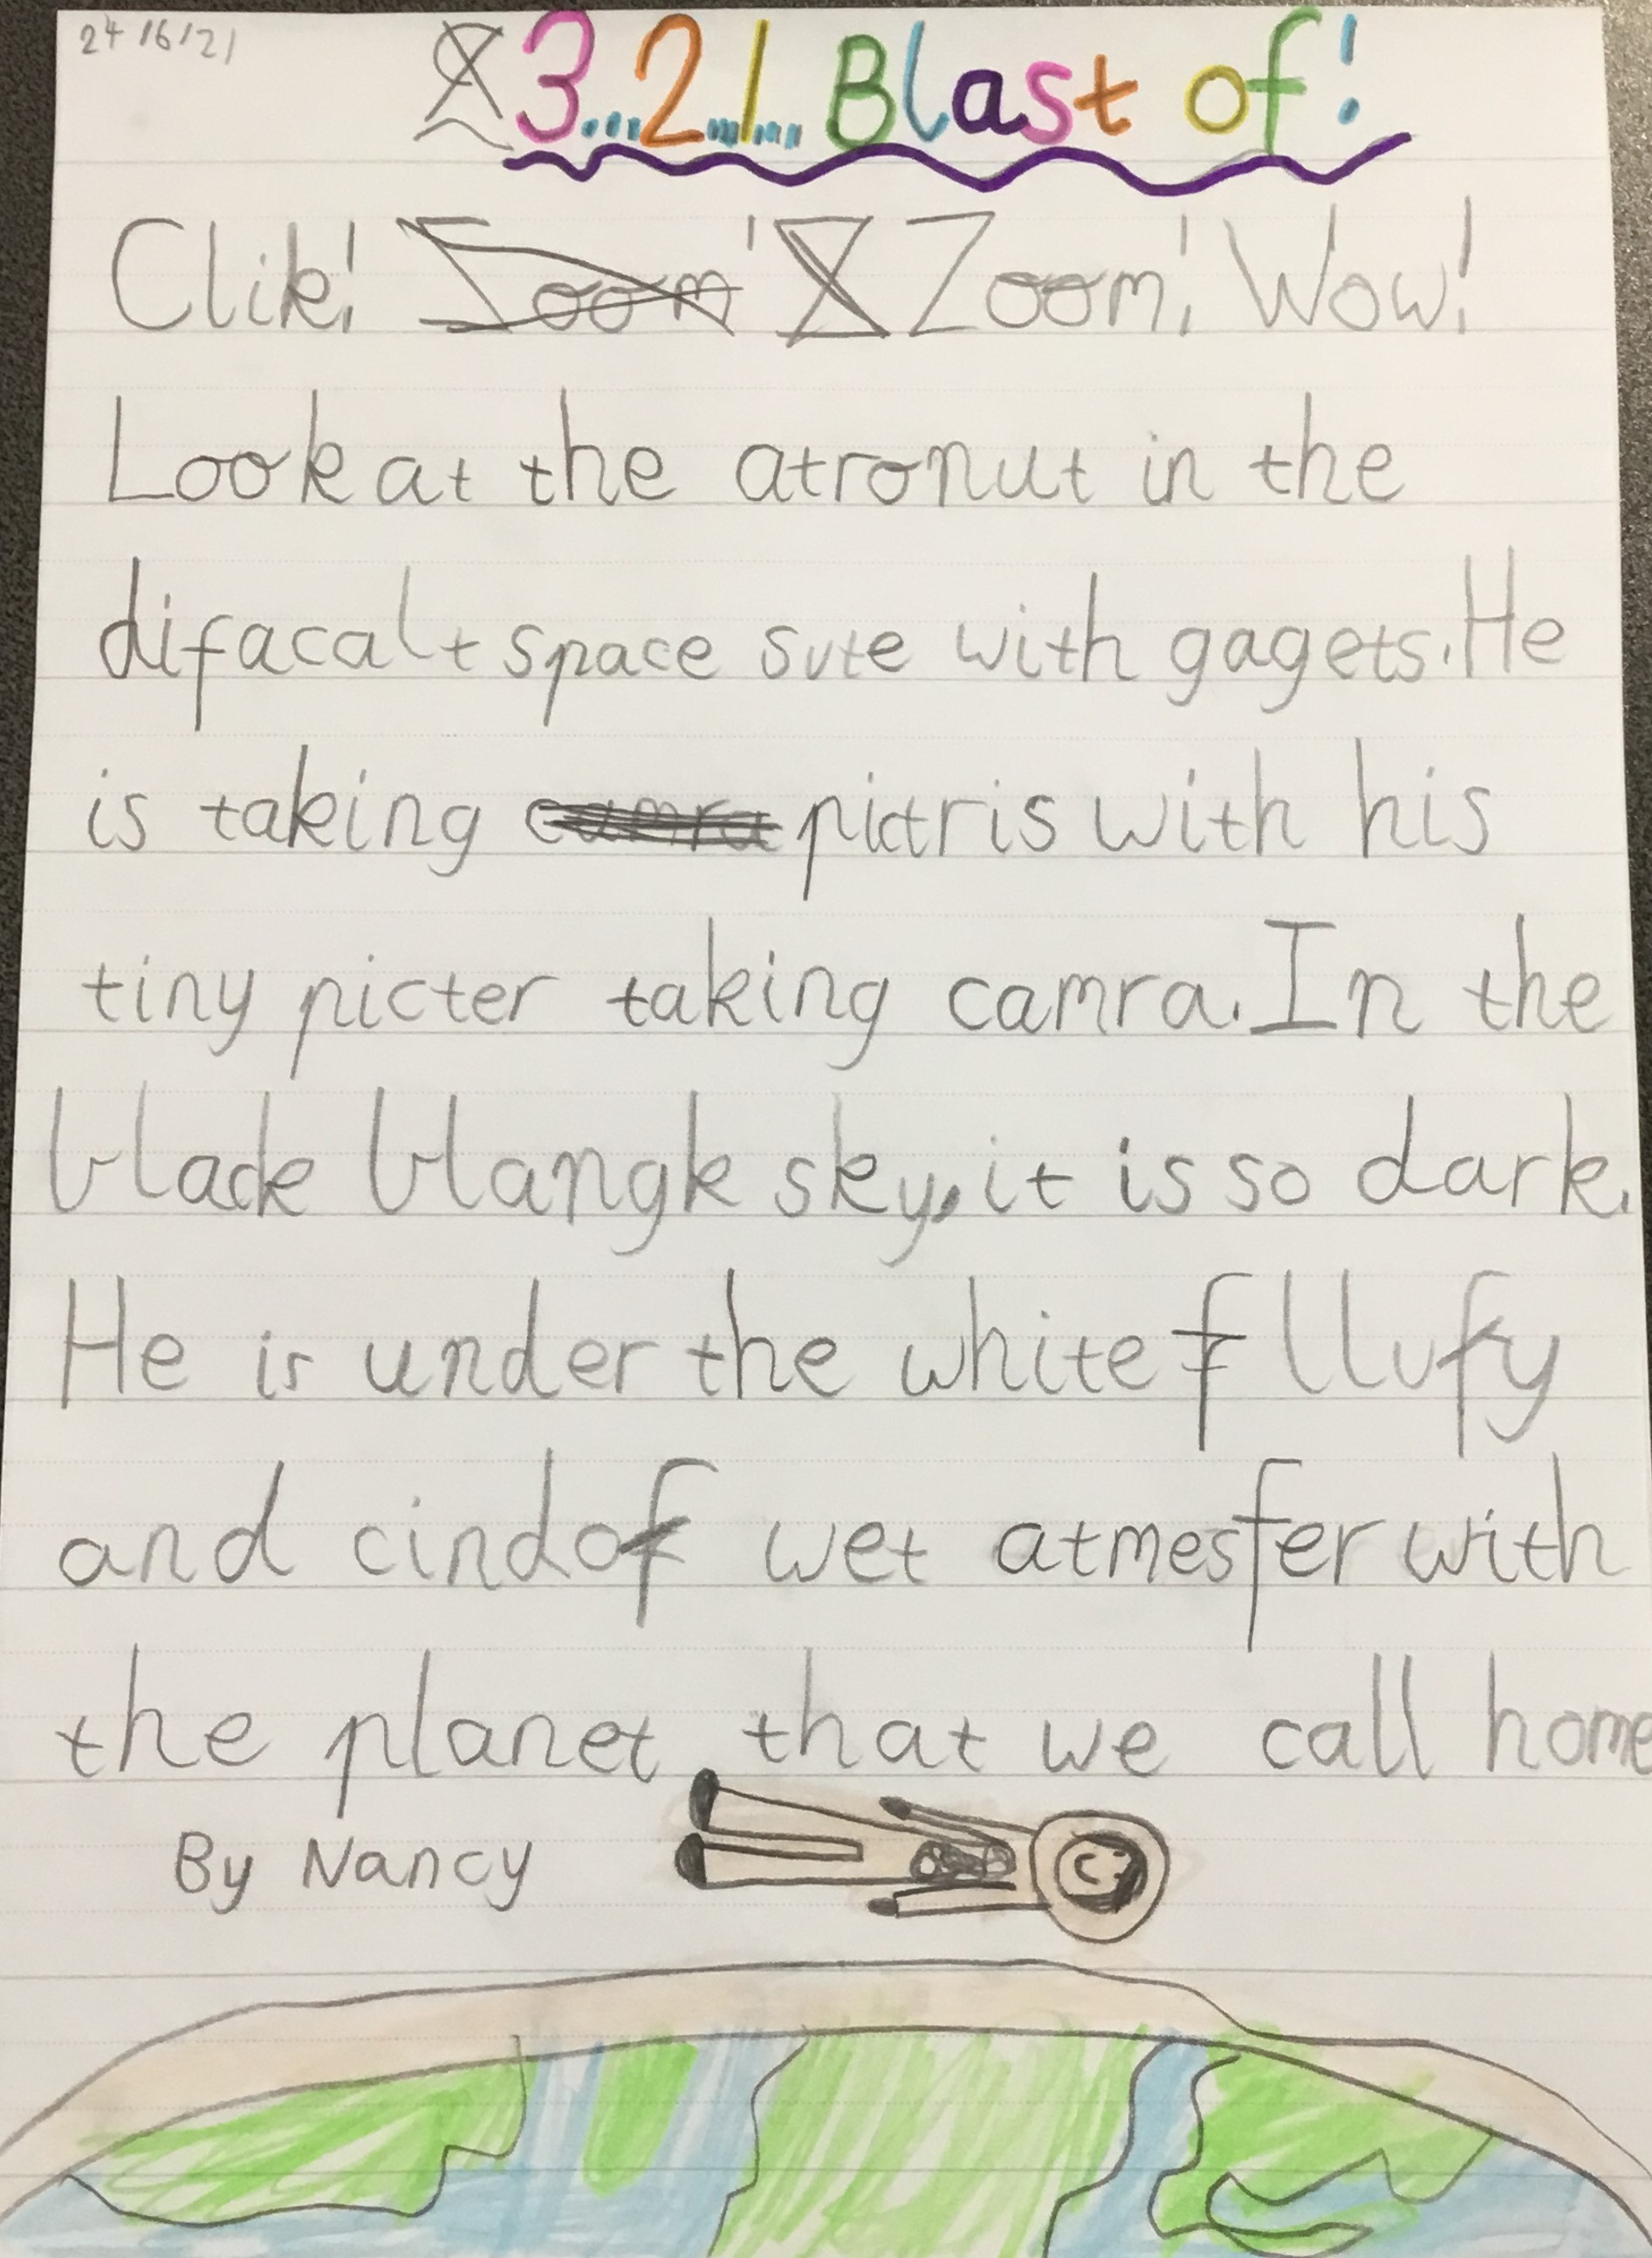 24/6/21
3...2...1... Blast of!
Clik! Zoom! Wow!
Look at the atronut in the
difacalt space sute with gagets. He
is taking pictris with his
tiny picter taking camra. In the
black blangk sky, it is so dark.
He is under the white fllufy
and cindof wet atmesfer with
the planet that we call home
By Nancy